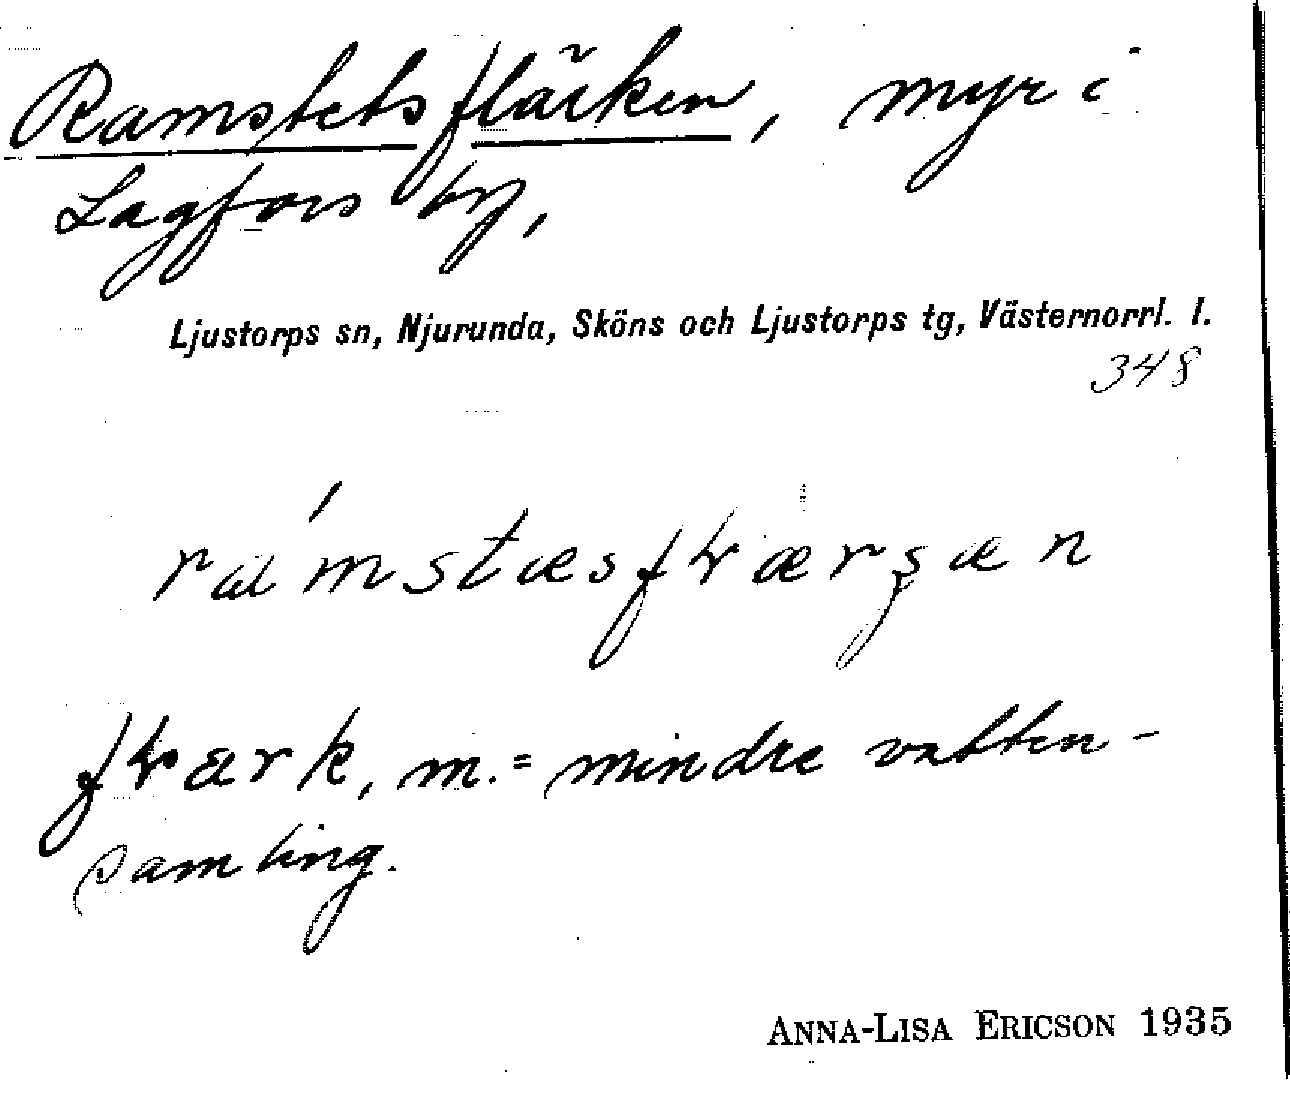 Ramstetsflärken, myr i
Lagfors by,
Ljustorps sn, Njurunda, Sköns och Ljustorps tg, Västernorrl. l.
348
ra´mstæsfɽærşæn
fɽærk, m. = mindre vatten-
samling.
ANNA-LISA ERICSON 1935